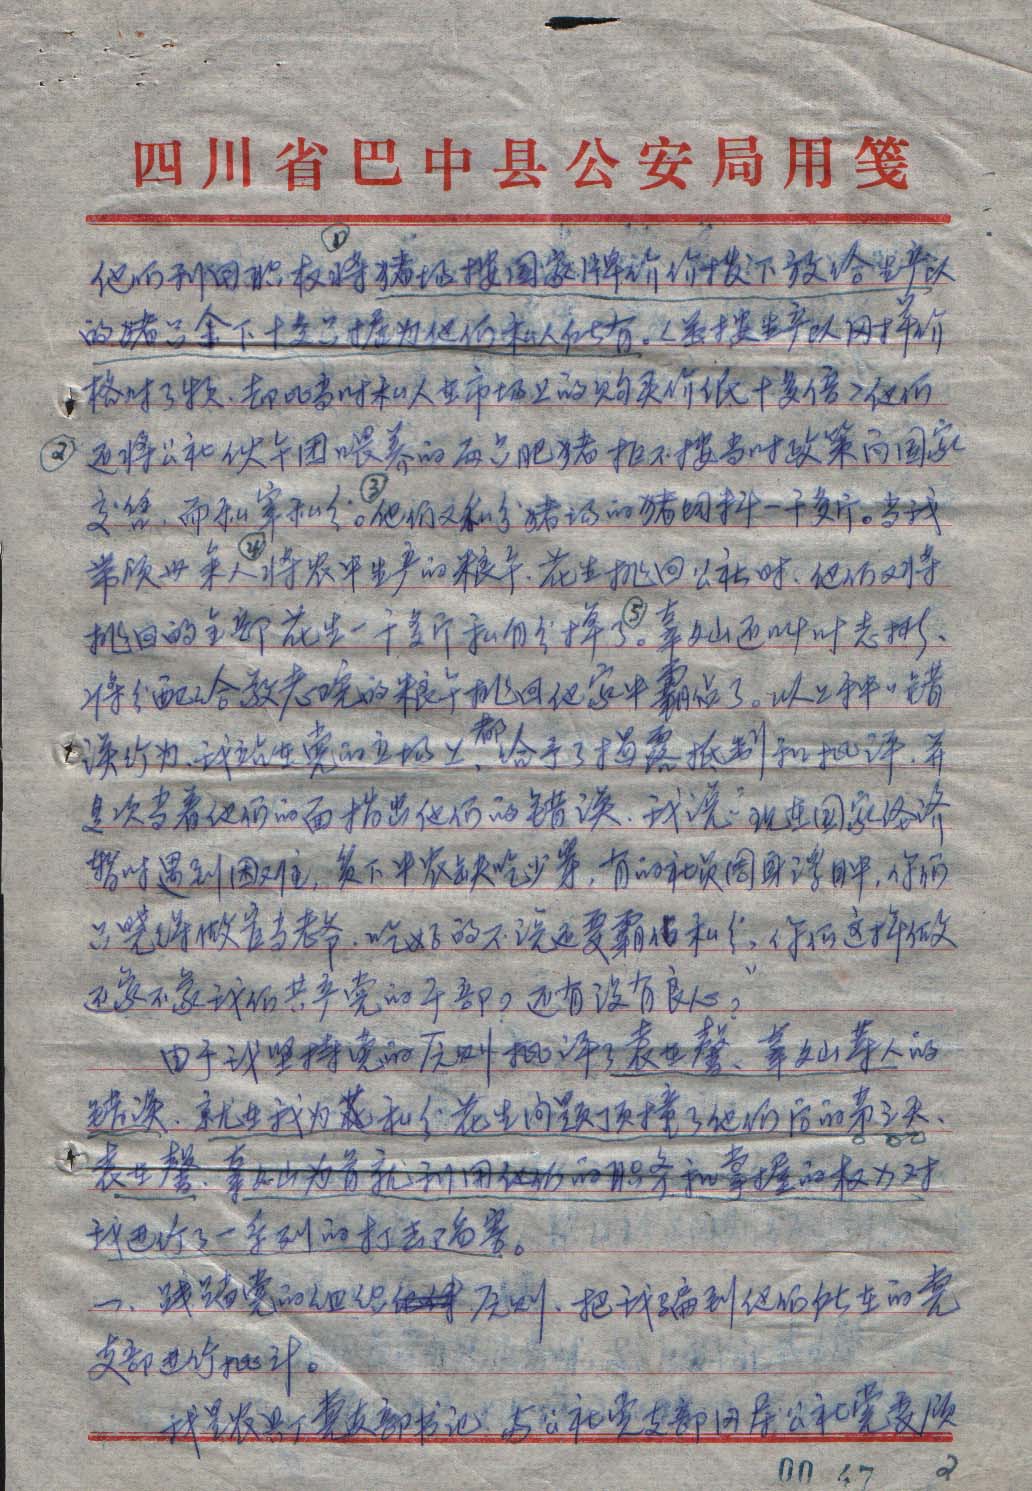 四川省巴中县公安局用笺
他们利用职权①将猪场按国家牌价价拨下放给生产队
的猪只余下十多只据为他们私人所有。(虽按生产队同样价
格付了钱、却比当时私人在市场上的购买价低十多倍)他们
②还将公社伙午团喂养的两只肥猪拒不按当时政策向国家
交售、而私宰私分。③他们又私分猪场的猪饲料一千多斤。当我
带领廿余人④将农中生产的粮午、花生挑回公社时、他们又将
挑回的全部花生一千多斤私自分掉了。⑤辜文山还叫叶志彬、
将分配给敬老院的粮午挑回他家中霸占了。以上种种错
误行为、我站在党的立场上、都给予了揭露抵制和批评、并
多次当着他们的面指出他们的错误、我说:“现在国家经济
暂时遇到困难,贫下中农缺吃少穿,有的社员周身浮肿,你们
只晓得做官当老爷、吃好的不说还要霸佔私分,你们这样做
还象不象我们共产党的干部?还有没有良心?”
由于我坚持党的原则批评了袁世馨、辜文山等人的
错误、就在我为花私分花生问题顶撞了他们后的第三天、
袁世馨、辜文山为首就利用他们的职务和掌握的权力对
我进行了一系列的打击陷害。
一、践踏党的组织原则、把我骗到他们所在的党
支部进行批斗。
我是农具厂党支部书记、与公社党支部同属公社党委领
00 47 2